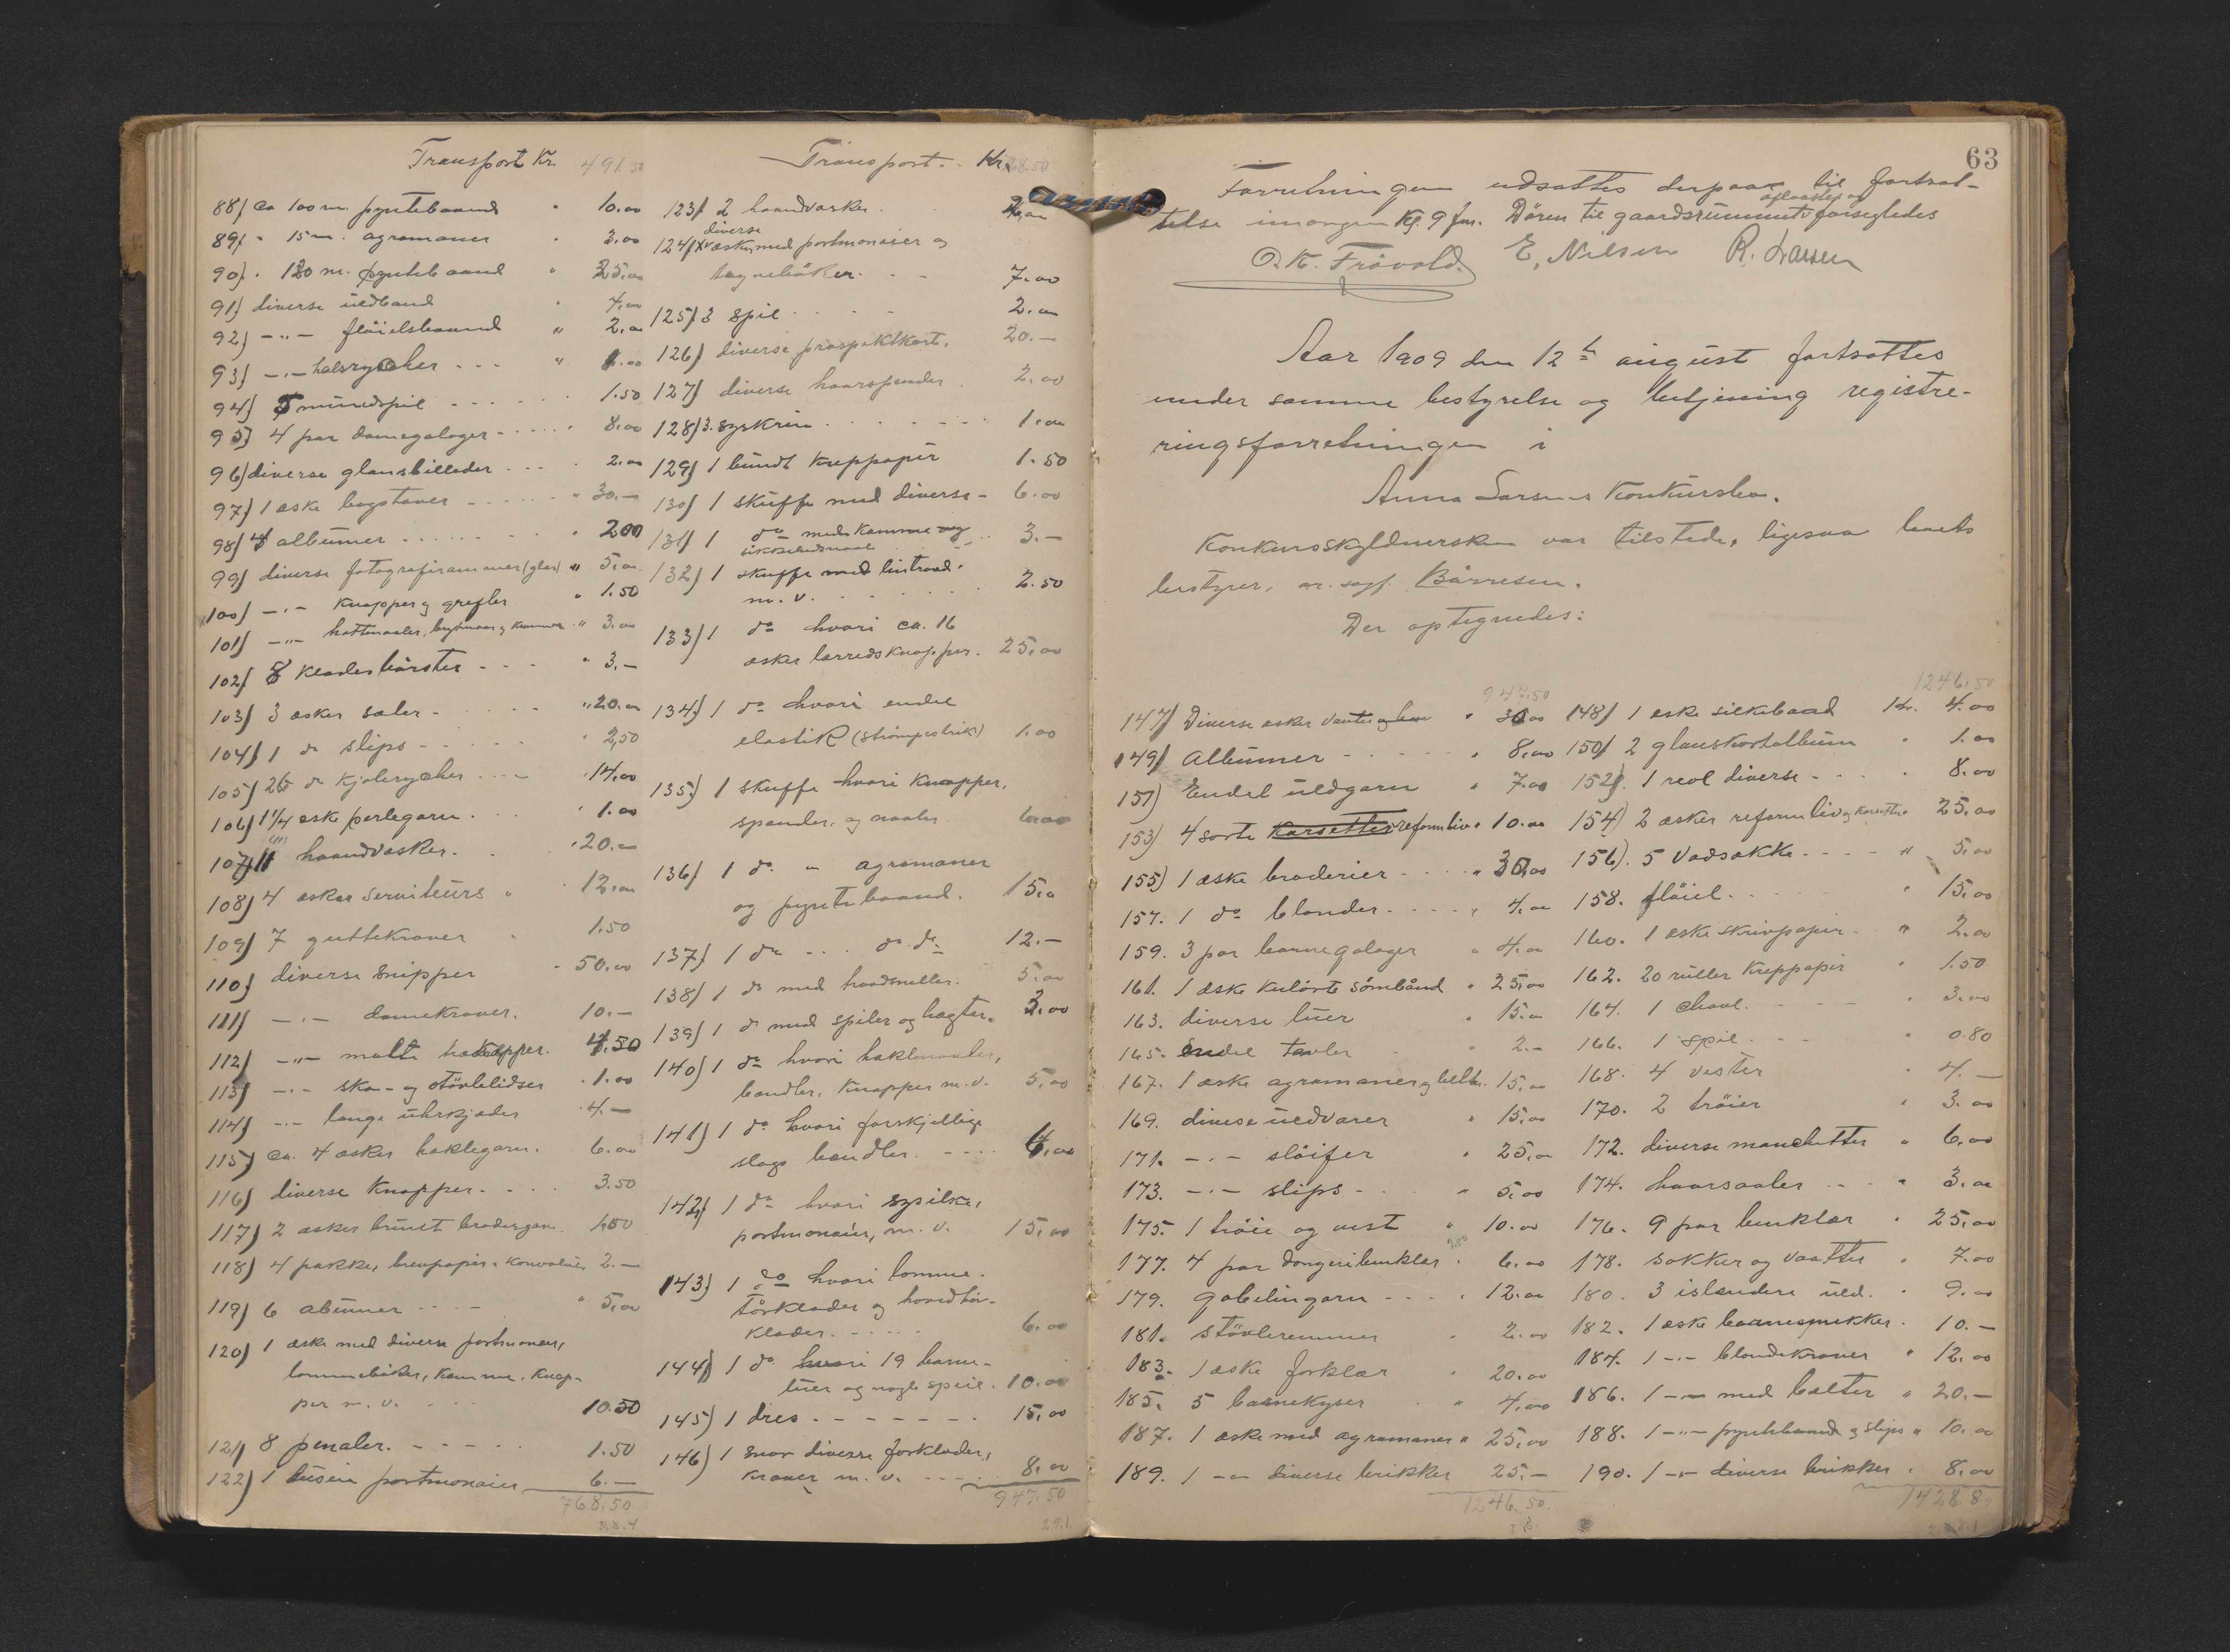 Transport Kr. 491.50
88) ca 100 m. pyntebaand " 10.00
89) " 15 m. agramaner " 3.00
90) " 120 m. pyntebaand " 25,00
91) diverse uldbaand " 4,00
92) -"- fløielsbaand " 2,00
93) -"- halsryscher - - - " 1.00
94) 5 mundspil - - - - - 1.50
95) 4 par damegaloger - - - - - 8,00
96) diverse glansbilleder - - - 2.00
97) 1 æske bogstaver - - - - - " 30.-
98) 4 albumer - - - - - 2.00
99) diverse fotografirammer (glas) " 5,00
100) -"- knapper og grefler " 1.50
101) -"- hattenaaler, og kammer " 3.00
102) 8 klædesbørster - - - " 3.-
103) 3 æsker sæler - - - - " 20.00
104) 1 do slips - - - - " 2,50
105) 26 do kjoleryscher - - - " 14,00
106) 1 1/4 æske perlegarn " 1.00
(11)
107) 11 haandvæsker. " 20.-
108) 4 æsker serviteurs " 12,00
109) 7 guttekraver " 1.50
110) diverse snipper " 50.00
111) -"- damekraver. 10.-
112) -"- matte knapper. 4.50
113) -"- sko- og støvlelidser " 1.00
114) -"- lange uhrkjæder " 4.-
115) ca. 4 æsker heklegarn. 6.00
116) diverse knapper - - - - 3.50
117) 2 æsker brunt brodergarn 1.50
118) 4 pakker, brevpapir & konvoluter 2.-
119) 6 albumer - - - - " 5,00
120) 1 æske med diverse portmonæer,
lommebøker, kamme, knap-
per m. v. - - - 10.50
121) 8 penaler. - - - - - 1.50
122) 1 dusin portmonaier 6.-
768.50
Transport. - Kr. 768.50
123) 2 haandvæsker. 2,00
diverse
124) æsker med portmonaier og
tegnebøker. - - 7.00
125) 3 spil - - - - 2.00
126) diverse prospektkort. 20.-
127) diverse haarspender. 2.00
128) 3 syskrin - - - - - 1.00
129) 1 bundt kreppapir 1.50
130) 1 skuffe med diverse - 6.00
131) 1 do med kamme og
sikkerhedsnaale - - 3.-
132) 1 skuffe med lintraad
m. v. - - - - - 2.50
133) 1 do hvori ca. 16
æsker lærredsknapper. 25,00
134) 1 do hvori endel
elastik (strømpestrik) 1.00
135) 1 skuffe hvori knapper,
spænder, og naaler. 6.00
136) 1 do " agramaner
og pyntebaand. 15,00
137) 1 do - - do do 12.-
138) 1 do med traadsneller. 5.00
139) 1 do med spiler og hægter. 3.00
140) 1 do hvori heklenaaler,
bændler, knapper m. v. 5,00
141) 1 do hvori forskjellige
slags bændler. - - - - 4,00
142) 1 do hvori sysilke,
portmonaier, m. v. 15,00
143) 1 do hvori lomme-
tørklæder og hovedtør-
klæder. - - - - - 6.00
144) 1 do hvori 19 barne-
luer og nogle speil. 10.00
145) 1 dres. - - - - - - - 15,00
146) 1 snor diverse forklæder,
kraver m. v. - - - - - 8.00
947.50
63
Forretningen udsattes derpaa til fortsæt-
aflaastes og
telse imorgen Kl. 9 fm. Døren til gaardsrummet forsegledes
O. K. Frøvold. E. Nilsen R. Larsen
Aar 1909 den 12te august fortsattes
under samme bestyrelse og betjening registre-
ringsforretningen i
Anna Larsens konkursbo.
Konkursskyldnersken var tilstede, ligesaa boets
bestyrer, or. sagf. Børresen.
Der optegnedes:
947.50
147) Diverse æsker vanter " 30.00
149) Albumer - - - - " 8,00
151) Endel uldgarn " 7.00
153) 4 sorte Korsetter reformliv " 10.00
155) 1 æske broderier - - - - " 30.00
157. 1 do blonder - - - - " 4.00
159. 3 par barnegaloger " 4.00
161. 1 æske kulørte sømbånd " 25,00
163. diverse luer " 15.00
165. Endel tavler " 2.-
167. 1 æske agramaner og belter. 15,00
169. diverse uldvarer " 15,00
171. -"- sløifer " 25,00
173. -"- slips - - " 5.00
175. 1 trøie og vest " 10.00
177. 4 par dongeribenklær " 6.00
179. gobelingarn - - - - " 12.00
181. støvleremmer " 2.00
183. 1 æske forklær " 20.00
185. 5 barnekyser " 4.00
187. 1 æske med agramaner " 25,00
189. 1 -"- diverse brikker 25.-
1246.50
1246.50
148) 1 æske silkebaad Kr. 4.00
150) 2 glanskortalbum " 1.00
152) 1 reol diverse - - - " 8.00
154) 2 æsker reformliv og korsetter " 25,00
156). 5 Vadsække - - - - " 5,00
158. fløiel - - - " 15,00
160. 1 æske skrivpapir - " 2.00
162. 20 ruller kreppapir " 1.50
164. 1 chavl. - - - - " 3.00
166. 1 spil - - - " 0.80
168. 4 vester " 4.-
170. 2 trøier " 3.00
172. diverse manchetter " 6,00
174. haarsaaler - - - " 3.00
176. 9 par benklær " 25,00
178. sokker og vaatter " 7.00
180. 3 islændere uld. " 9.00
182. 1 æske barnesmekker. 10.-
184. 1 -"- blondekraver " 12.00
186. 1 -"- med belter " 20.-
188. 1 -"- pyntebaand & slips " 10,00
190. 1 -"- diverse brikker " 8,00
1428.8